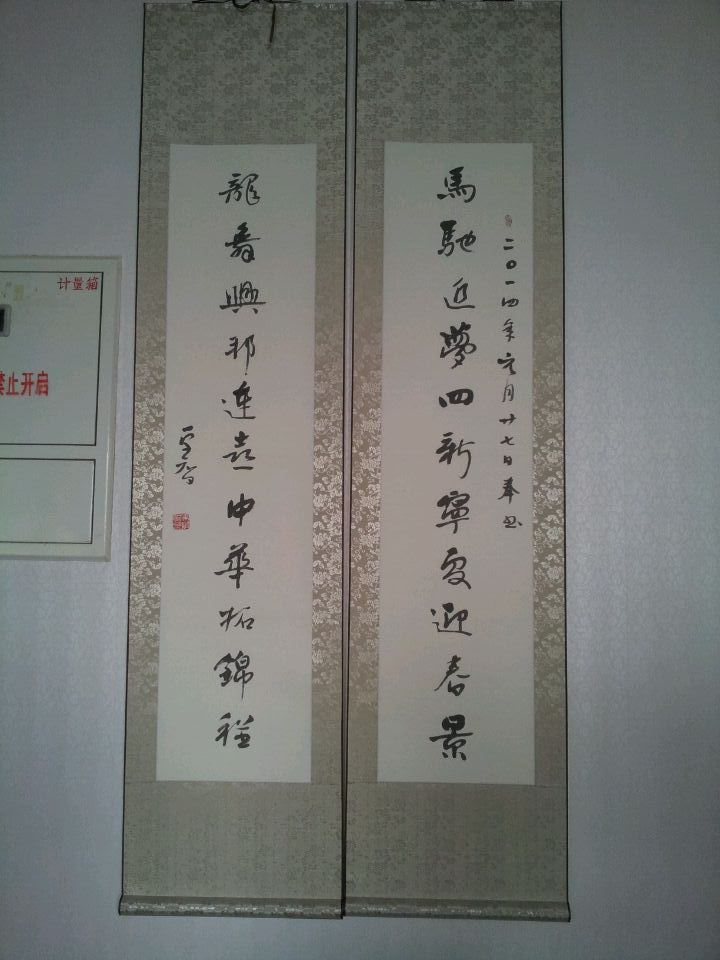 馬馳近夢四新寧夏迎春景
二〇一四年元月廿七日奉
龍舞興邦連喜中華拓錦程
计量箱
禁止开启